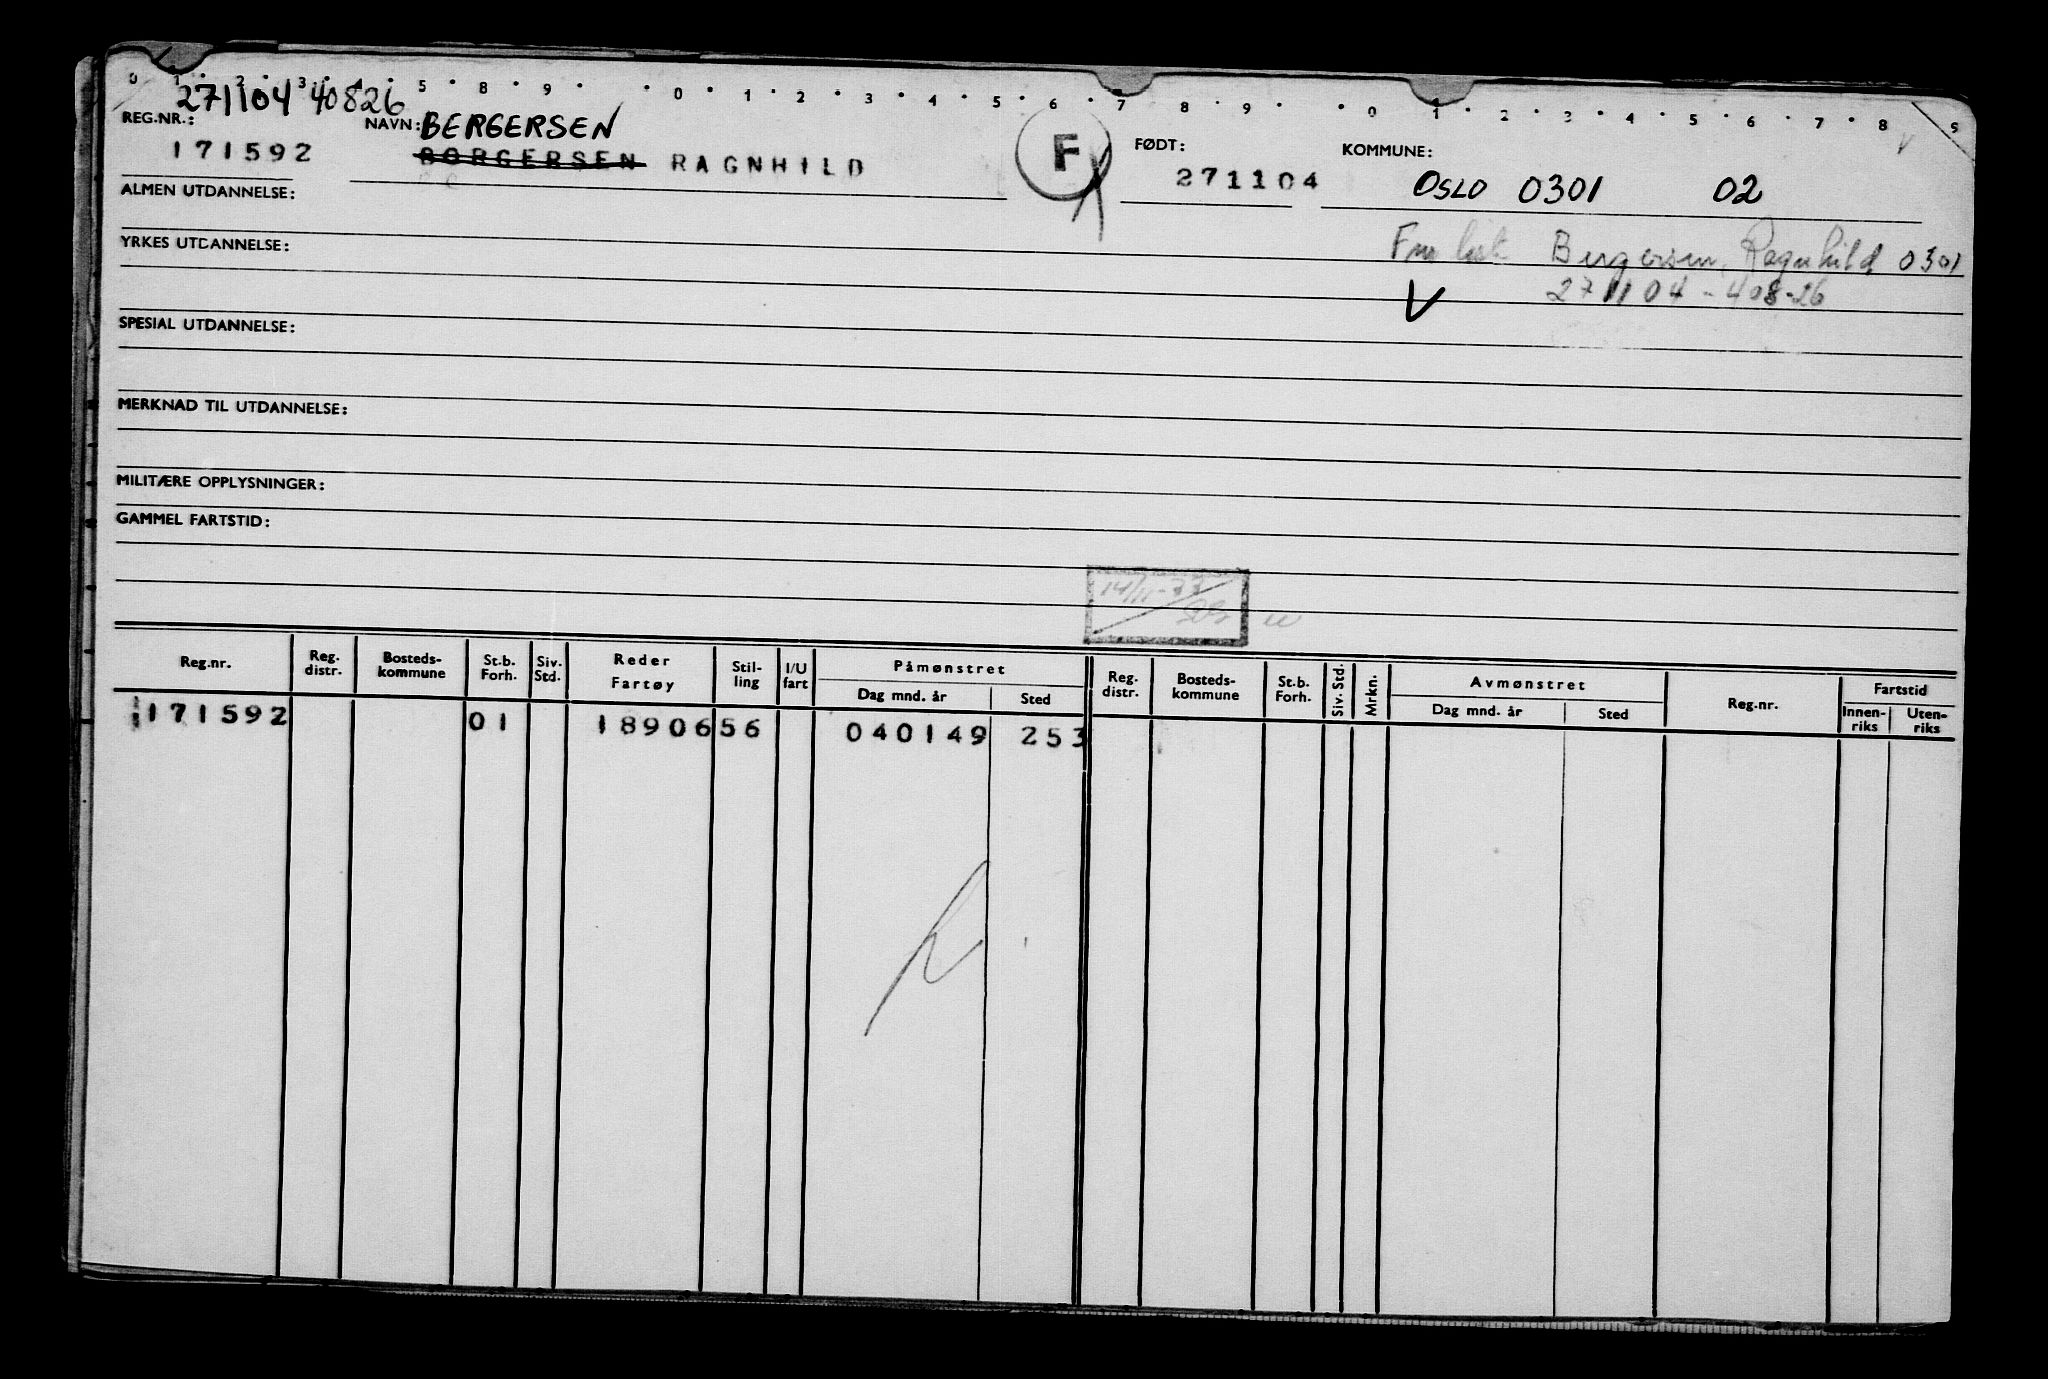 0 1 · 2 · 3 · 4 · 5 · 8 · 9 · · 0 · 1 · 2 · 3 · 4 · 5 · 6 · 7 · 8 · 9 · · 0 · 1 · 2 · 3 · 4 · 5 · 6 · 7 · 8 · 9
271104 40826
REG.NR.: NAVN: BERGERSEN FØDT: KOMMUNE:
171592 BORGERSEN RAGNHILD F 271104 OSLO 0301 02
ALMEN UTDANNELSE:
YRKES UTDANNELSE: Bergersen, Ragnhild 0301
V 271104-408-26
SPESIAL UTDANNELSE:
MERKNAD TIL UTDANNELSE:
MILITÆRE OPPLYSNINGER:
GAMMEL FARTSTID:
14/11-73
Reg.nr. Reg. distr. Bosteds-kommune St.b. Forh. Siv. Std. Reder Fartøy Stil-ling I/U fart Påmønstret Dag mnd. år Sted Reg. distr. Bosteds-kommune St.b. Forh. Siv. Std. Mrkn. Avmønstret Dag mnd. år Sted Reg.nr. Fartstid Innen-riks Uten-riks
171592 01 1890656 040149 253